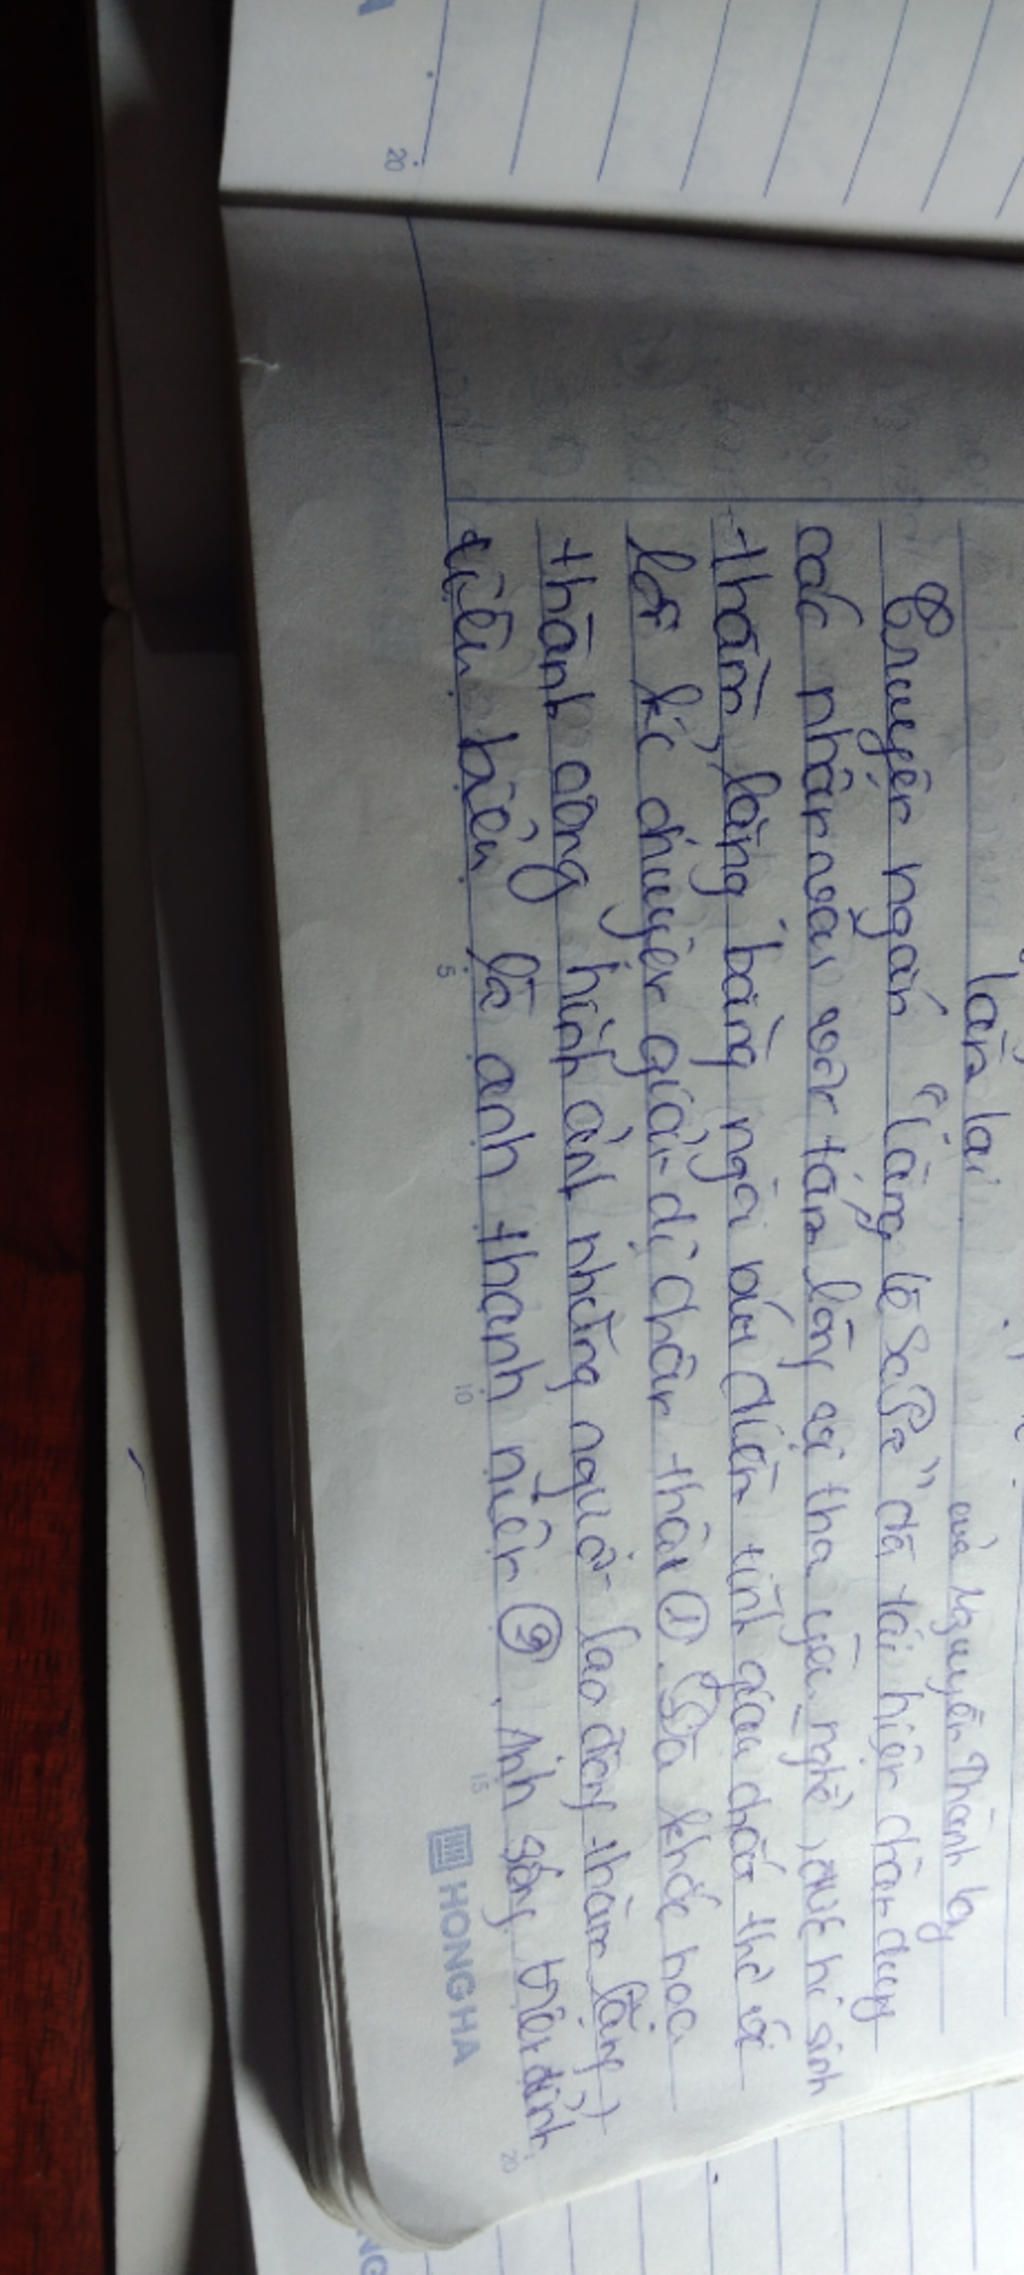 lần lại
của Nguyễn Thành Long
Truyện ngắn "Lặng lẽ Sa Pa" đã tái hiện chân dung
các nhân vật với tấm lòng vị tha yêu nghề, sự hi sinh
thầm lặng bằng ngòi bút điềm tĩnh giàu chất thơ với
lời kể chuyện giản dị chân thật ①. Đã khắc họa
thành công hình ảnh những người lao động thầm lặng
tiêu biểu là anh thanh niên ②. Anh sống trên đỉnh
5
10
15
20
20
HONG HA